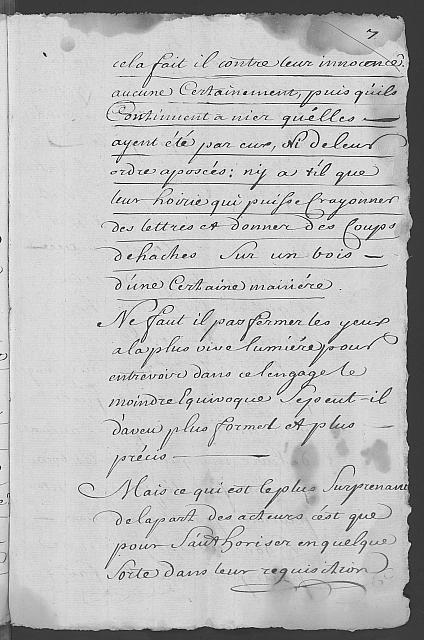 7
cela fait il contre leur innocence
aucune Certainement, puis qu'ils
Continuent a nier qu'elles
ayent été par eux, Ni de leur
ordre aposées: n'y a t'il que
leur hoirie qui puisse Crayonner
des lettres et donner des Coups
de haches Sur un bois
d'une Certaine maniére.
Ne faut il pas fermer les yeux
a la plus vive lumiére pour
entrevoir dans ce lengage le
moindre Equivoque Se peut-il
d'aveu plus formel et plus
précis
Mais ce qui est le plus Surprenant
de la part des acteurs c'est que
pour S'authoriser en quelque
Sorte dans leur requisition